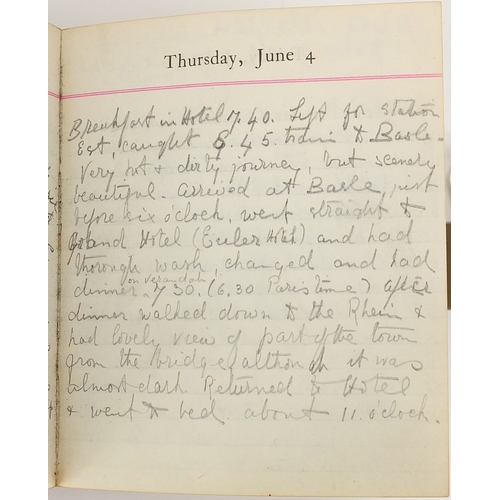 Thursday, June 4
Breakfast in Hotel 7.40. Left for station
Est, caught 8.45. train to Basle.
Very hot & dirty journey, but scenery
beautiful. Arrived at Basle, just
before six o'clock, went straight to
Grand Hotel (Euler Hotel) and had
thorough wash, changed and had
on Verandah
dinner. 7 30. (6.30 Paris time) after
dinner walked down to the Rhein &
had lovely view of part of the town
from the bridge, although it was
almost dark. Returned to Hotel
& went to bed about 11. o'clock.